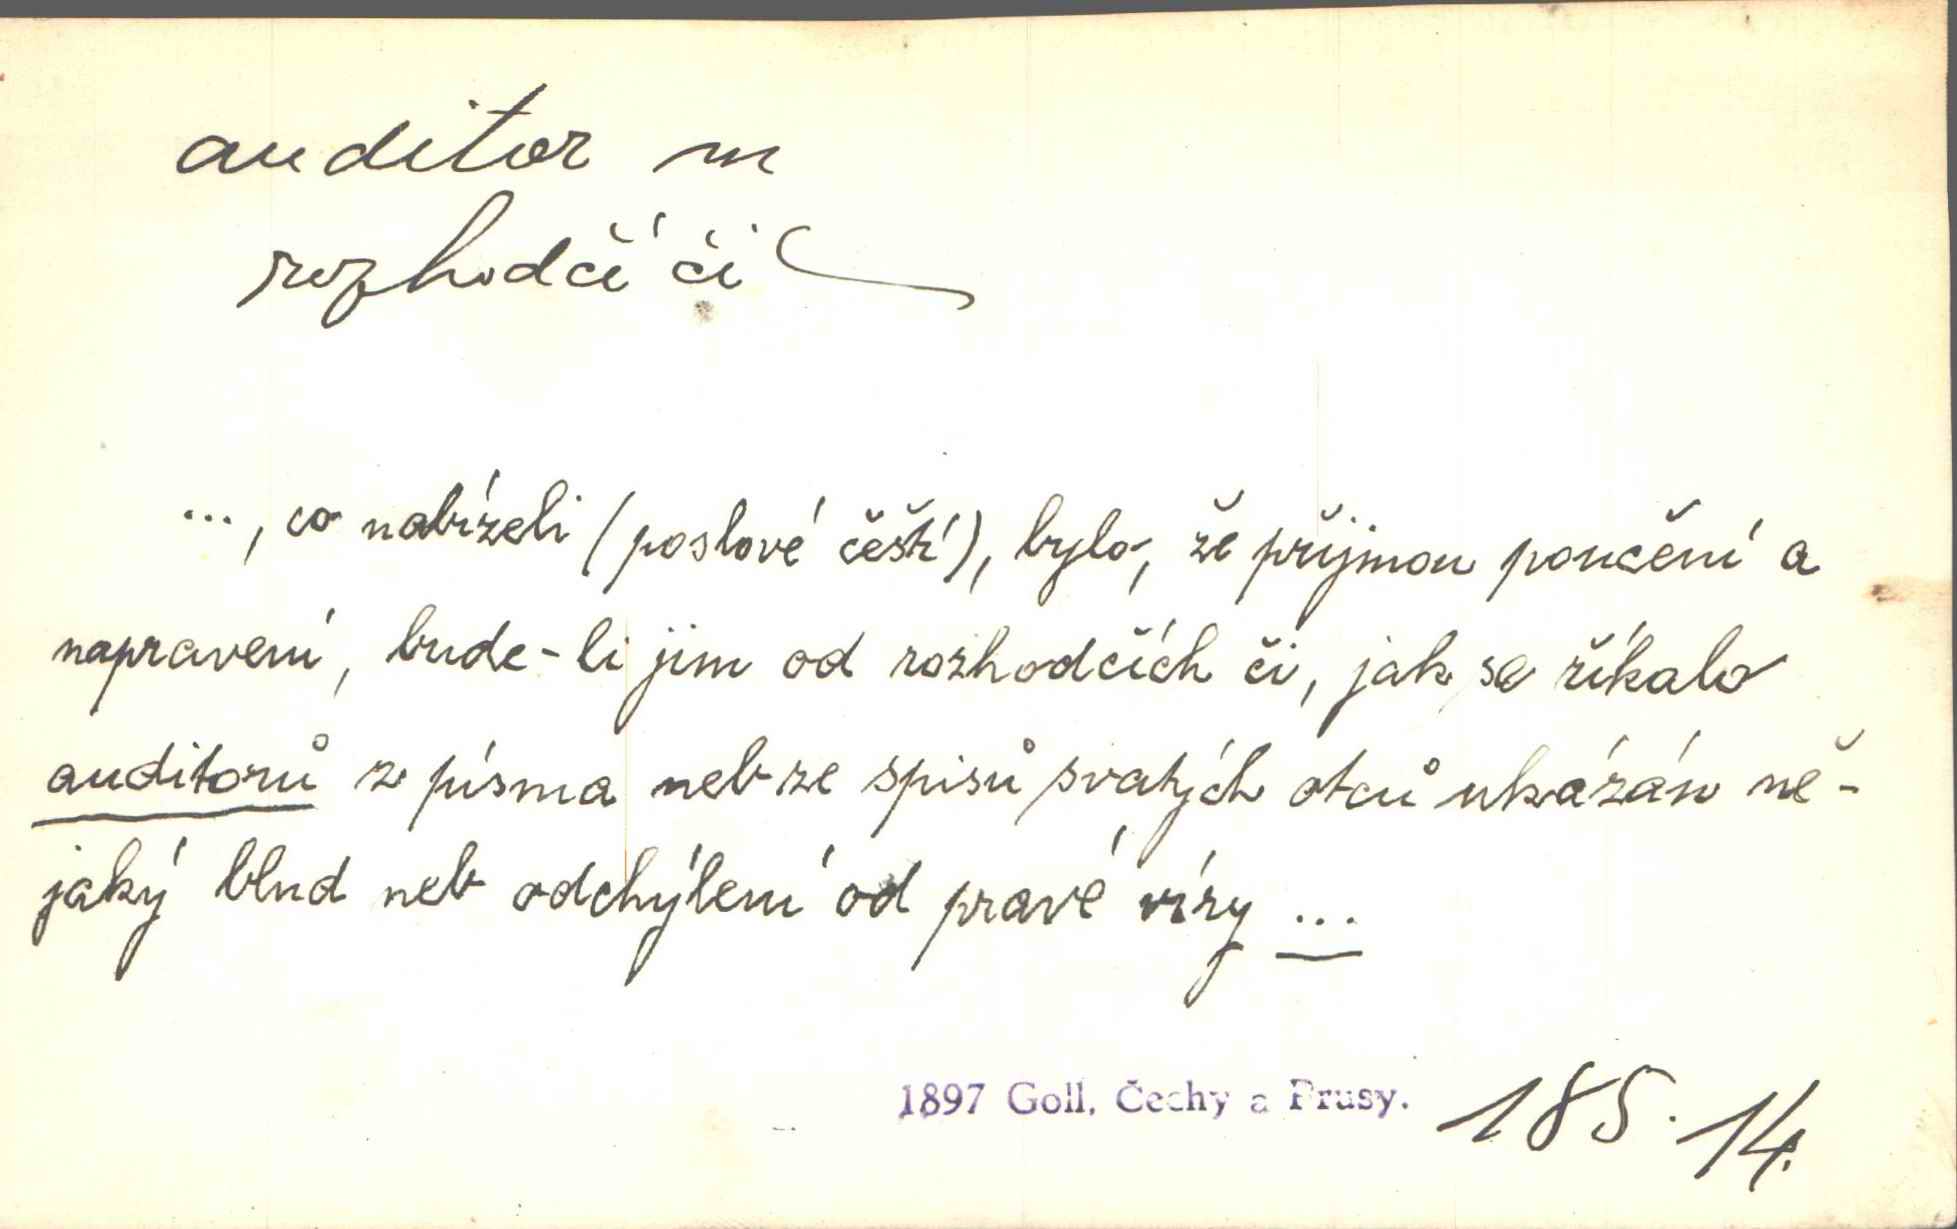 auditor m
rozhodčí či
..., co nabízeli (poslové čeští), bylo, že přijmou poučení a
napravení, bude-li jim od rozhodčích či, jak se říkalo
auditorů z písma neb ze spisů svatých otců ukázán ně-
jaký blud neb odchýlení od pravé víry ...
1897 Goll, Čechy a Prusy. 185. 14.